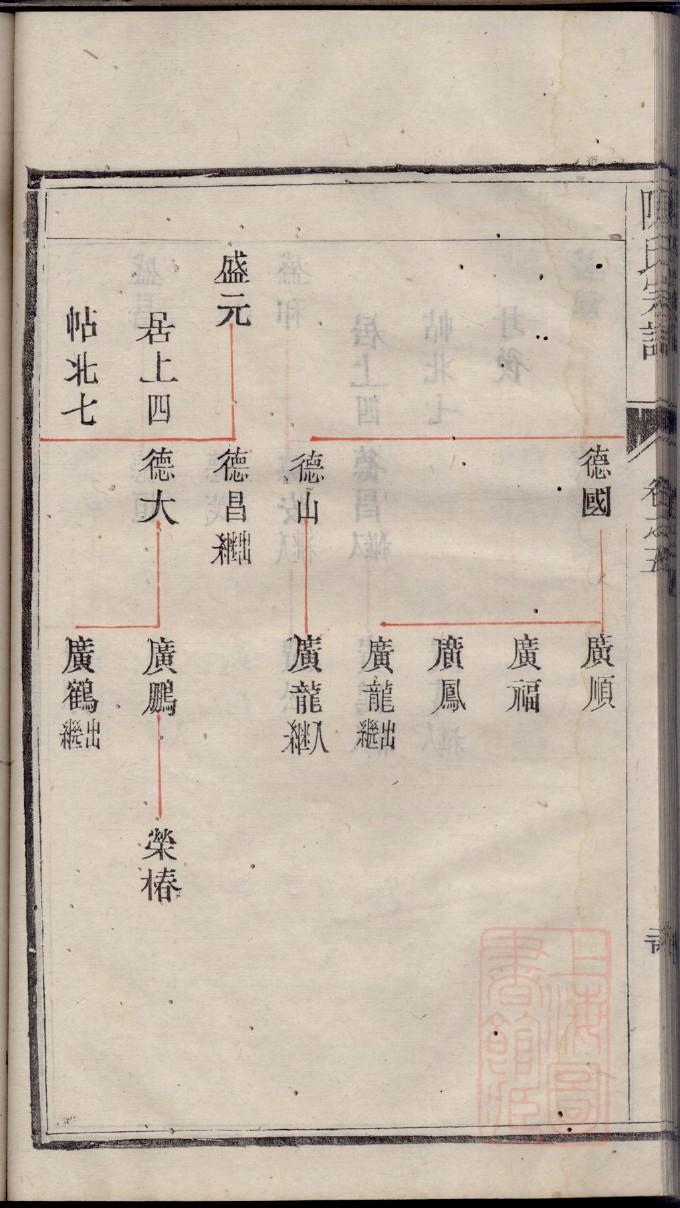 陳氏宗譜
卷之五
德國
廣順
廣福
廣鳳
廣龍出繼
德山
廣龍入繼
盛元
德昌出繼
居上四
德大
廣鵬
榮椿
帖北七
廣鶴出繼
上海圖書館藏